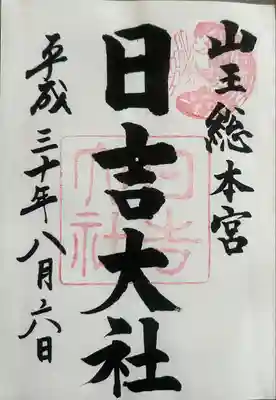 山王総本宮
日吉大社
平成三十年八月六日
日吉大社